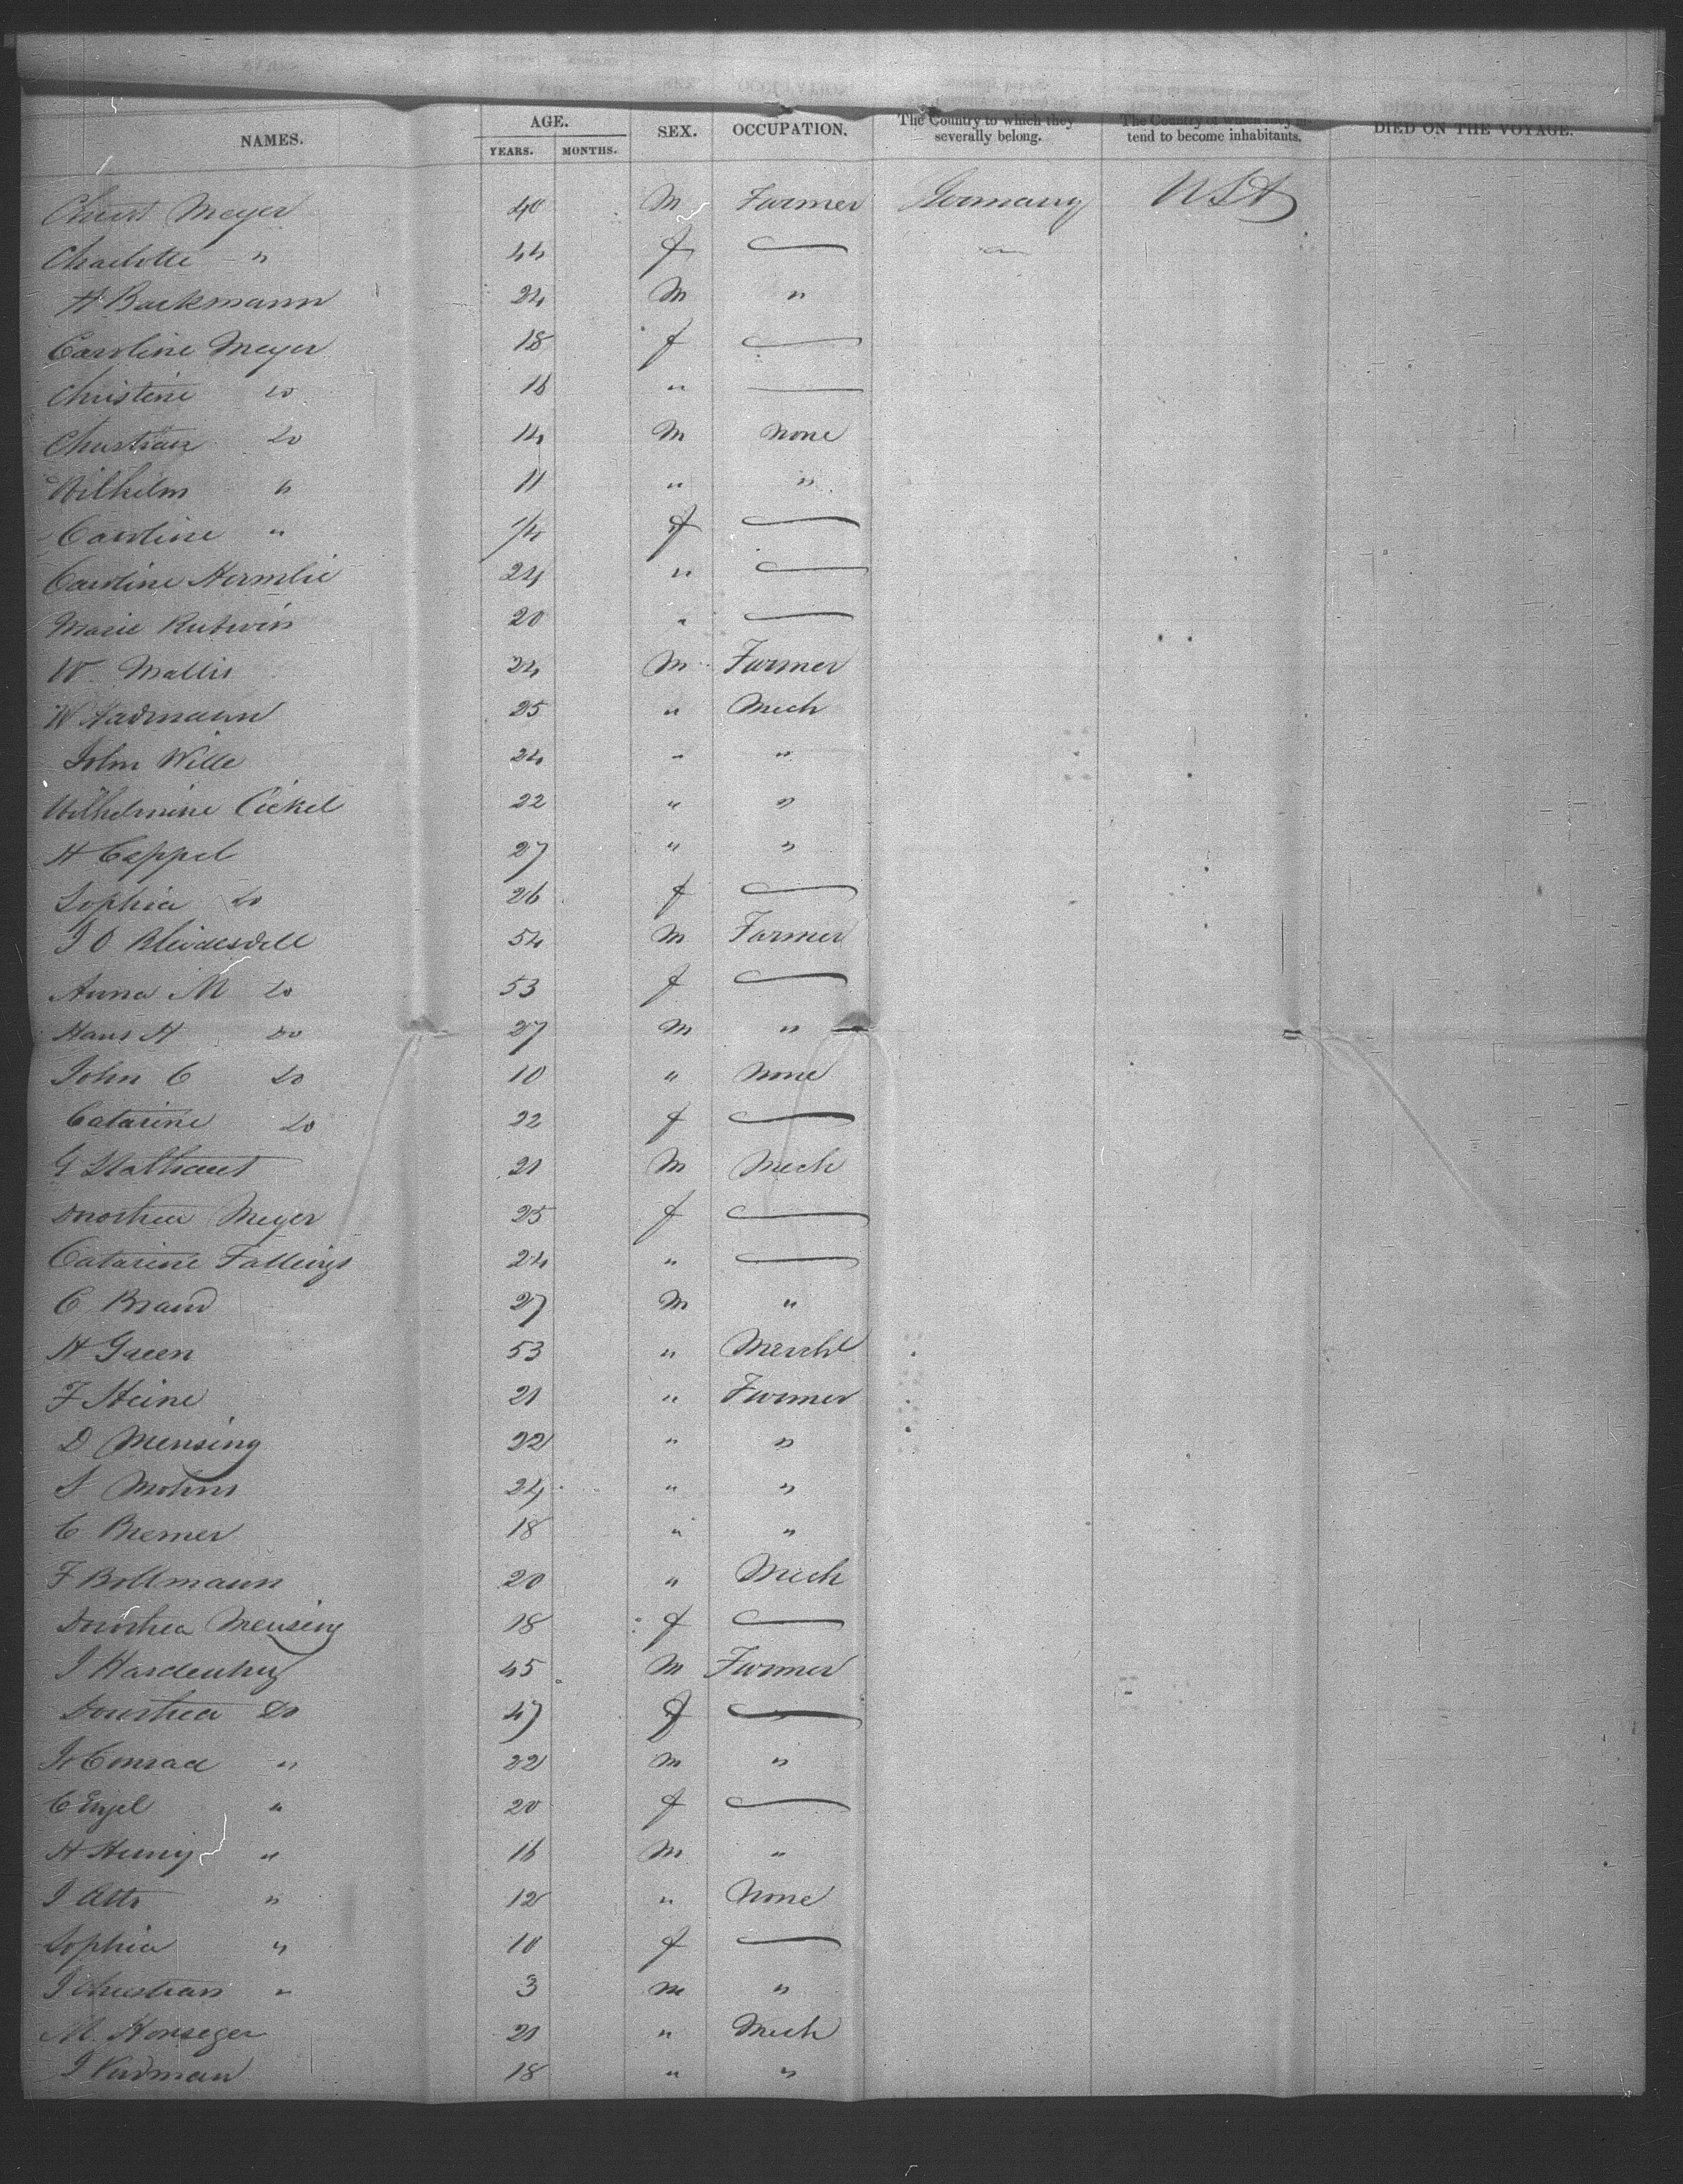 NAMES. AGE. YEARS. MONTHS. SEX. OCCUPATION. The Country to which they severally belong. The Country of which they in- tend to become inhabitants. DIED ON THE VOYAGE.
Christ Meyer 40 M Farmer Germany USA
Charlotte " 44 f —
H Backmann 24 M "
Caroline Meyer 18 f —
Christine do 16 " —
Christian do 14 M None
Wilhelm " 11 " "
Caroline " 1/4 f —
Caroline Hermlie 24 " —
Marie Rutwin 20 " —
W Mallis 24 M Farmer
W Hadmann 25 " Mech
John Wille 24 " "
Wilhelmine Cickel 22 " "
H Cappel 27 " "
Sophia do 26 f —
J O 54 M Farmer
Anna M do 53 f —
Hans H do 27 M "
John C do 10 " None
Catarine do 22 f —
G 21 M Mech
Dorothea Meyer 25 f —
Catarine Fallings 24 " —
C Brand 27 M "
H Green 53 " Mercht
F Heine 21 " Farmer
D Mensing 22 " "
S Mohns 24 " "
C Bremer 18 " "
F Bollmann 20 " Mech
Dorothea Mensing 18 f —
J Hardenburg 45 M Farmer
Dorothea Do 47 f —
Jr Conrad " 22 M "
C Engel " 20 f —
H Henry " 16 M "
J Otto " 12 " None
Sophia " 10 f —
J Christian " 3 M "
M. Honseger 21 " Mech
J 18 " "